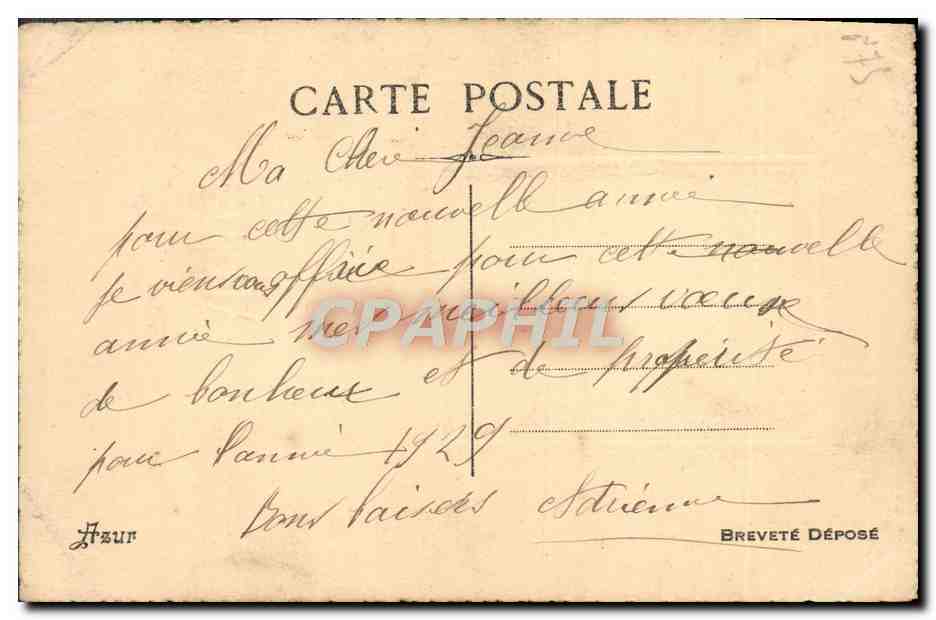 75
CARTE POSTALE
Ma Chere Jeanne
pour cette nouvelle année
je viens vous offrire pour cette nouvelle
année mes meilleurs voeux
de bonheux et de propérité
pour l'année 1929
Bons baisers Adrienne
Azur
BREVETÉ DÉPOSÉ
CPAPHIL